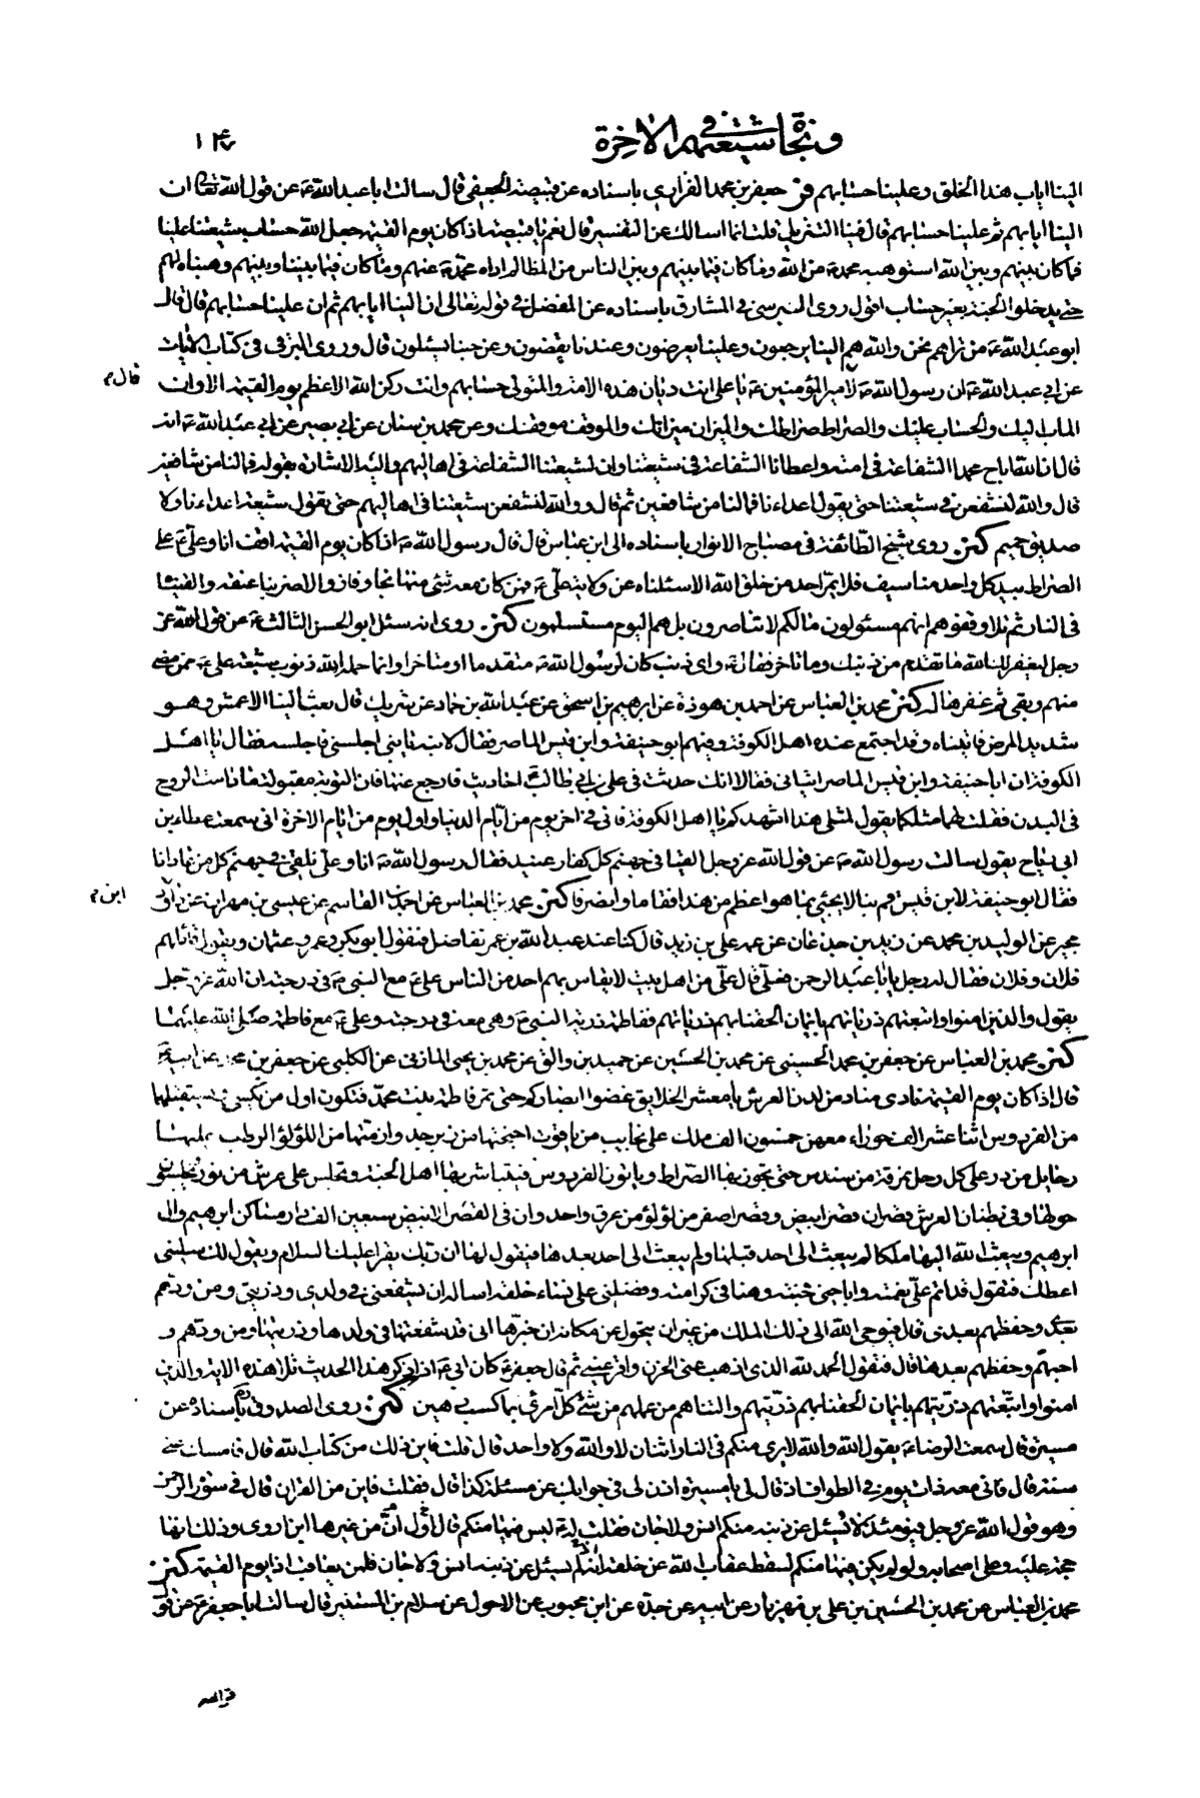 ونجاة شيعتهم في الآخرة ١٤٧
الينا اياب هذا الخلق وعلينا حسابهم فر جعفر بن محمد الفزاري باسناده عن قبيصة الجعفي قال سالت ابا عبد الله ع عن قول الله تعالى ان
الينا ايابهم ثم ان علينا حسابهم قال فينا التنزيل قلت انما اسالك عن التفسير قال نعم يا قبيصة اذا كان يوم القيمة جعل الله حساب شيعتنا علينا
فما كان بينهم وبين الله استوهبه محمد ص من الله وما كان فيما بينهم وبين الناس من المظالم اداه محمد ص عنهم وما كان فيما بيننا وبينهم وهبناه لهم
حتى يدخلوا الجنة بغير حساب اقول روى البرسي في المشارق باسناده عن المفضل في قوله تعالى ان الينا ايابهم ثم ان علينا حسابهم قال قال
ابو عبد الله ع من تراهم نحن والله هم الينا يرجعون وعلينا يعرضون وعندنا يقضون وعن حبنا يسئلون قال وروى البرقي في كتاب الايات
عن ابي عبد الله ع ان رسول الله ص لامير المؤمنين ع يا علي انت ديان هذه الامة والمتولي حسابهم وانت ركن الله الاعظم يوم القيمة الا وان
قال م
الماب اليك والحساب عليك والصراط صراطك والميزان ميزانك والموقف موقفك وعن محمد بن سنان عن ابي بصير عن ابي عبد الله ع انه
قال ان الله اباح محمدا الشفاعة في امته واعطانا الشفاعة في شيعتنا وان لشيعتنا الشفاعة في اهاليهم واليه الاشارة بقوله فما لنا من شافعين
قال والله لنشفعن في شيعتنا حتى يقول اعداءنا فما لنا من شافعين ثم قال والله لتشفعن شيعتنا في اهاليهم حتى يقول شيعة اعداءنا ولا
صديق حميم كنز روى شيخ الطائفة في مصباح الانوار باسناده الى ابن عباس قال قال رسول الله ص اذا كان يوم القيمة اقف انا وعلي ع على
الصراط بيد كل واحد منا سيف فلا يمر احد من خلق الله الا سئلناه عن ولاية علي ع فمن كان معه شئ منها نجا وفاز والا ضربنا عنقه والقيناه
في النار ثم تلا وقفوهم انهم مسئولون ما لكم لا تناصرون بل هم اليوم مستسلمون كنز روى انه سئل ابو الحسن الثالث ع عن قول الله عز
وجل ليغفر لك الله ما تقدم من ذنبك وما تاخر فقال ع واي ذنب كان لرسول الله ص متقدما او متاخرا وانما حمله الله ذنوب شيعة علي ع ممن مضى
منهم وبقي ثم غفرها له كنز محمد بن العباس عن احمد بن هوذة عن ابرهيم بن اسحق عن عبد الله بن حماد عن شريك قال بعث الينا الاعمش وهو
شديد المرض فاتيناه وقد اجتمع عنده اهل الكوفة وفيهم ابو حنيفة وابن قيس الماصر فقال لابنه يا بني اجلسني فاجلسه فقال يا اهل
الكوفة ان ابا حنيفة وابن قيس الماصر اتياني فقالا انك حدثت في علي بن ابي طالب احاديث فارجع عنها فان التوبة مقبولة ما دامت الروح
في البدن فقلت لهما مثلكما يقول لمثلي هذا اشهدكم يا اهل الكوفة فاني في اخر يوم من ايام الدنيا واول يوم من ايام الاخرة اني سمعت عطاء بن
ابي رباح يقول سالت رسول الله ص عن قول الله عز وجل القيا في جهنم كل كفار عنيد فقال رسول الله ص انا وعلي نلقي في جهنم كل من عادانا
فقال ابو حنيفة لابن قيس قم بنا لا يجيئ بما هو اعظم من هذا فقاما وانصرفا كنز محمد بن العباس عن احمد بن القاسم عن عيسى بن مهران عن داود
ابن م
مجير عن الوليد بن محمد عن زيد بن جدعان عن عمه علي بن زيد قال كنا عند عبد الله بن عمر نفاضل فنقول ابو بكر وعمر وعثمان ويقول قائلهم
فلان وفلان فقال له رجل يا ابا عبد الرحمن فعلي قال علي من اهل بيت لا يقاس بهم احد من الناس علي ع مع النبي ص في درجته ان الله عز وجل
يقول والذين امنوا واتبعتهم ذرياتهم بايمان الحقنا بهم ذرياتهم ففاطمة ذرية النبي ص وهي معه في درجته وعلي ع مع فاطمة صلى الله عليهما
كنز محمد بن العباس عن جعفر بن محمد الحسيني عن محمد بن الحسين عن حميد بن والق عن محمد بن يحيى المازني عن الكلبي عن جعفر بن محمد عن ابيه ع
قال اذا كان يوم القيمة نادى مناد من لدن العرش يا معشر الخلايق غضوا ابصاركم حتى تمر فاطمة بنت محمد فتكون اول من تكسى ويستقبلها
من الفردوس اثنا عشر الف حوراء معهن خمسون الف ملك على نجايب من ياقوت اجنحتها من زبرجد وازمتها من اللؤلؤ الرطب عليها
رحايل من در على كل رحل نمرقة من سندس حتى تجوز بها الصراط وياتون الفردوس فيتباشر بها اهل الجنة وتجلس على عرش من نور ويجلسون
حولها وفي بطنان العرش قصران قصر ابيض وقصر اصفر من لؤلؤ من عرق واحد وان في القصر الابيض سبعين الف دار مساكن ابرهيم وال
ابرهيم ويبعث الله اليها ملكا لم يبعث الى احد قبلها ولم يبعث الى احد بعدها فيقول لها ان ربك يقرا عليك السلام ويقول لك سليني
اعطك فتقول قد اتم علي نعمته واباحني جنته وهناني كرامته وفضلني على نساء خلقه اساله ان يشفعني في ولدي وذريتي ومن ودهم
بعدي وحفظهم بعدي قال فيوحي الله الى ذلك الملك من غير ان يتحول عن مكانه ان خبرها اني قد شفعتها في ولدها وذريتها ومن ودهم و
احبهم وحفظهم بعدها قال فتقول الحمد لله الذي اذهب عني الحزن واقر عيني ثم قال جعفر ع كان ابي ع اذا ذكر هذا الحديث تلا هذه الاية والذين
امنوا واتبعتهم ذريتهم بايمان الحقنا بهم ذريتهم وما التناهم من عملهم من شئ كل امرئ بما كسب رهين كنز روى الصدوق ره باسناده عن
ميسرة قال سمعت الرضا ع يقول الله والله لا يرى منكم في النار اثنان لا والله ولا واحد قال قلت فاين ذلك من كتاب الله قال فامسك عني
سنة قال فاني معه ذات يوم في الطواف اذ قال لي يا ميسرة اذن لي في جوابك عن مسئلة كذا قال فقلت فاين من القران قال في سورة الرحمن
وهو قول الله عز وجل فيومئذ لا يسئل عن ذنبه منكم انس ولا جان فقلت له ليس فيها منكم قال اول من غيرها ابن اروى وذلك انها
حجة عليه وعلى اصحابه ولو لم يكن فيها منكم لسقط عقاب الله عن خلقه اذا لم يسئل عن ذنبه انس ولا جان فلمن يعاقب اذا يوم القيمة كنز
محمد بن العباس عن محمد بن الحسين بن علي بن مهزيار عن ابيه عن جده عن ابن محبوب عن الاحول عن سلام بن المستنير قال سالت ابا جعفر ع عن قول